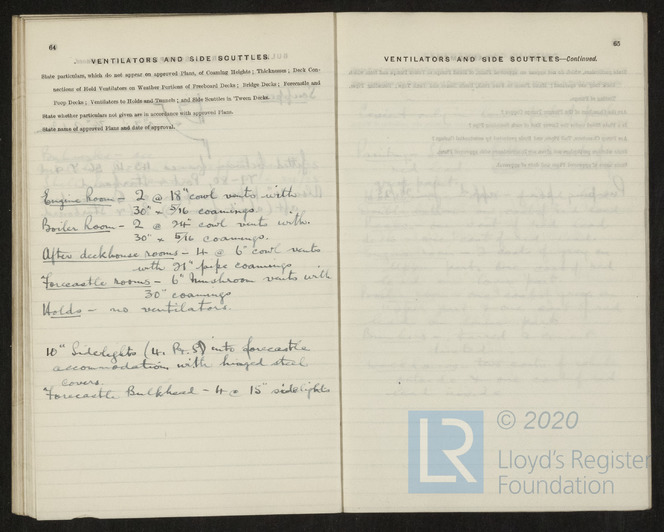 64
VENTILATORS AND SIDE SCUTTLES.
State particulars, which do not appear on approved Plans, of Coaming Heights; Thicknesses; Deck Con-
nections of Held Ventilators on Weather Portions of Freeboard Decks; Bridge Decks; Forecastle and
Poop Decks; Ventilators to Holds and Tunnels; and Side Scuttles in 'Tween Decks.
State whether particulars not given are in accordance with approved Plans.
State name of approved Plans and date of approval.
Engine Room - 2 @ 18" cowl vents with
30" x 5/16 coamings
Boiler Room - 2 @ 24" cowl vents with.
30" x 5/16 coamings.
After deckhouse rooms - 4 @ 6" cowl vents
with 21" pipe coamings
Forecastle rooms - 6" mushroom vents with
30" coamings
Holds - no ventilators.
10" Sidelights (4. P. S) into forecastle
accommodation with hinged steel
covers.
Forecastle Bulkhead - 4 @ 15" sidelights
65
VENTILATORS AND SIDE SCUTTLES—Continued.
LR
© 2020
Lloyd's Register
Foundation